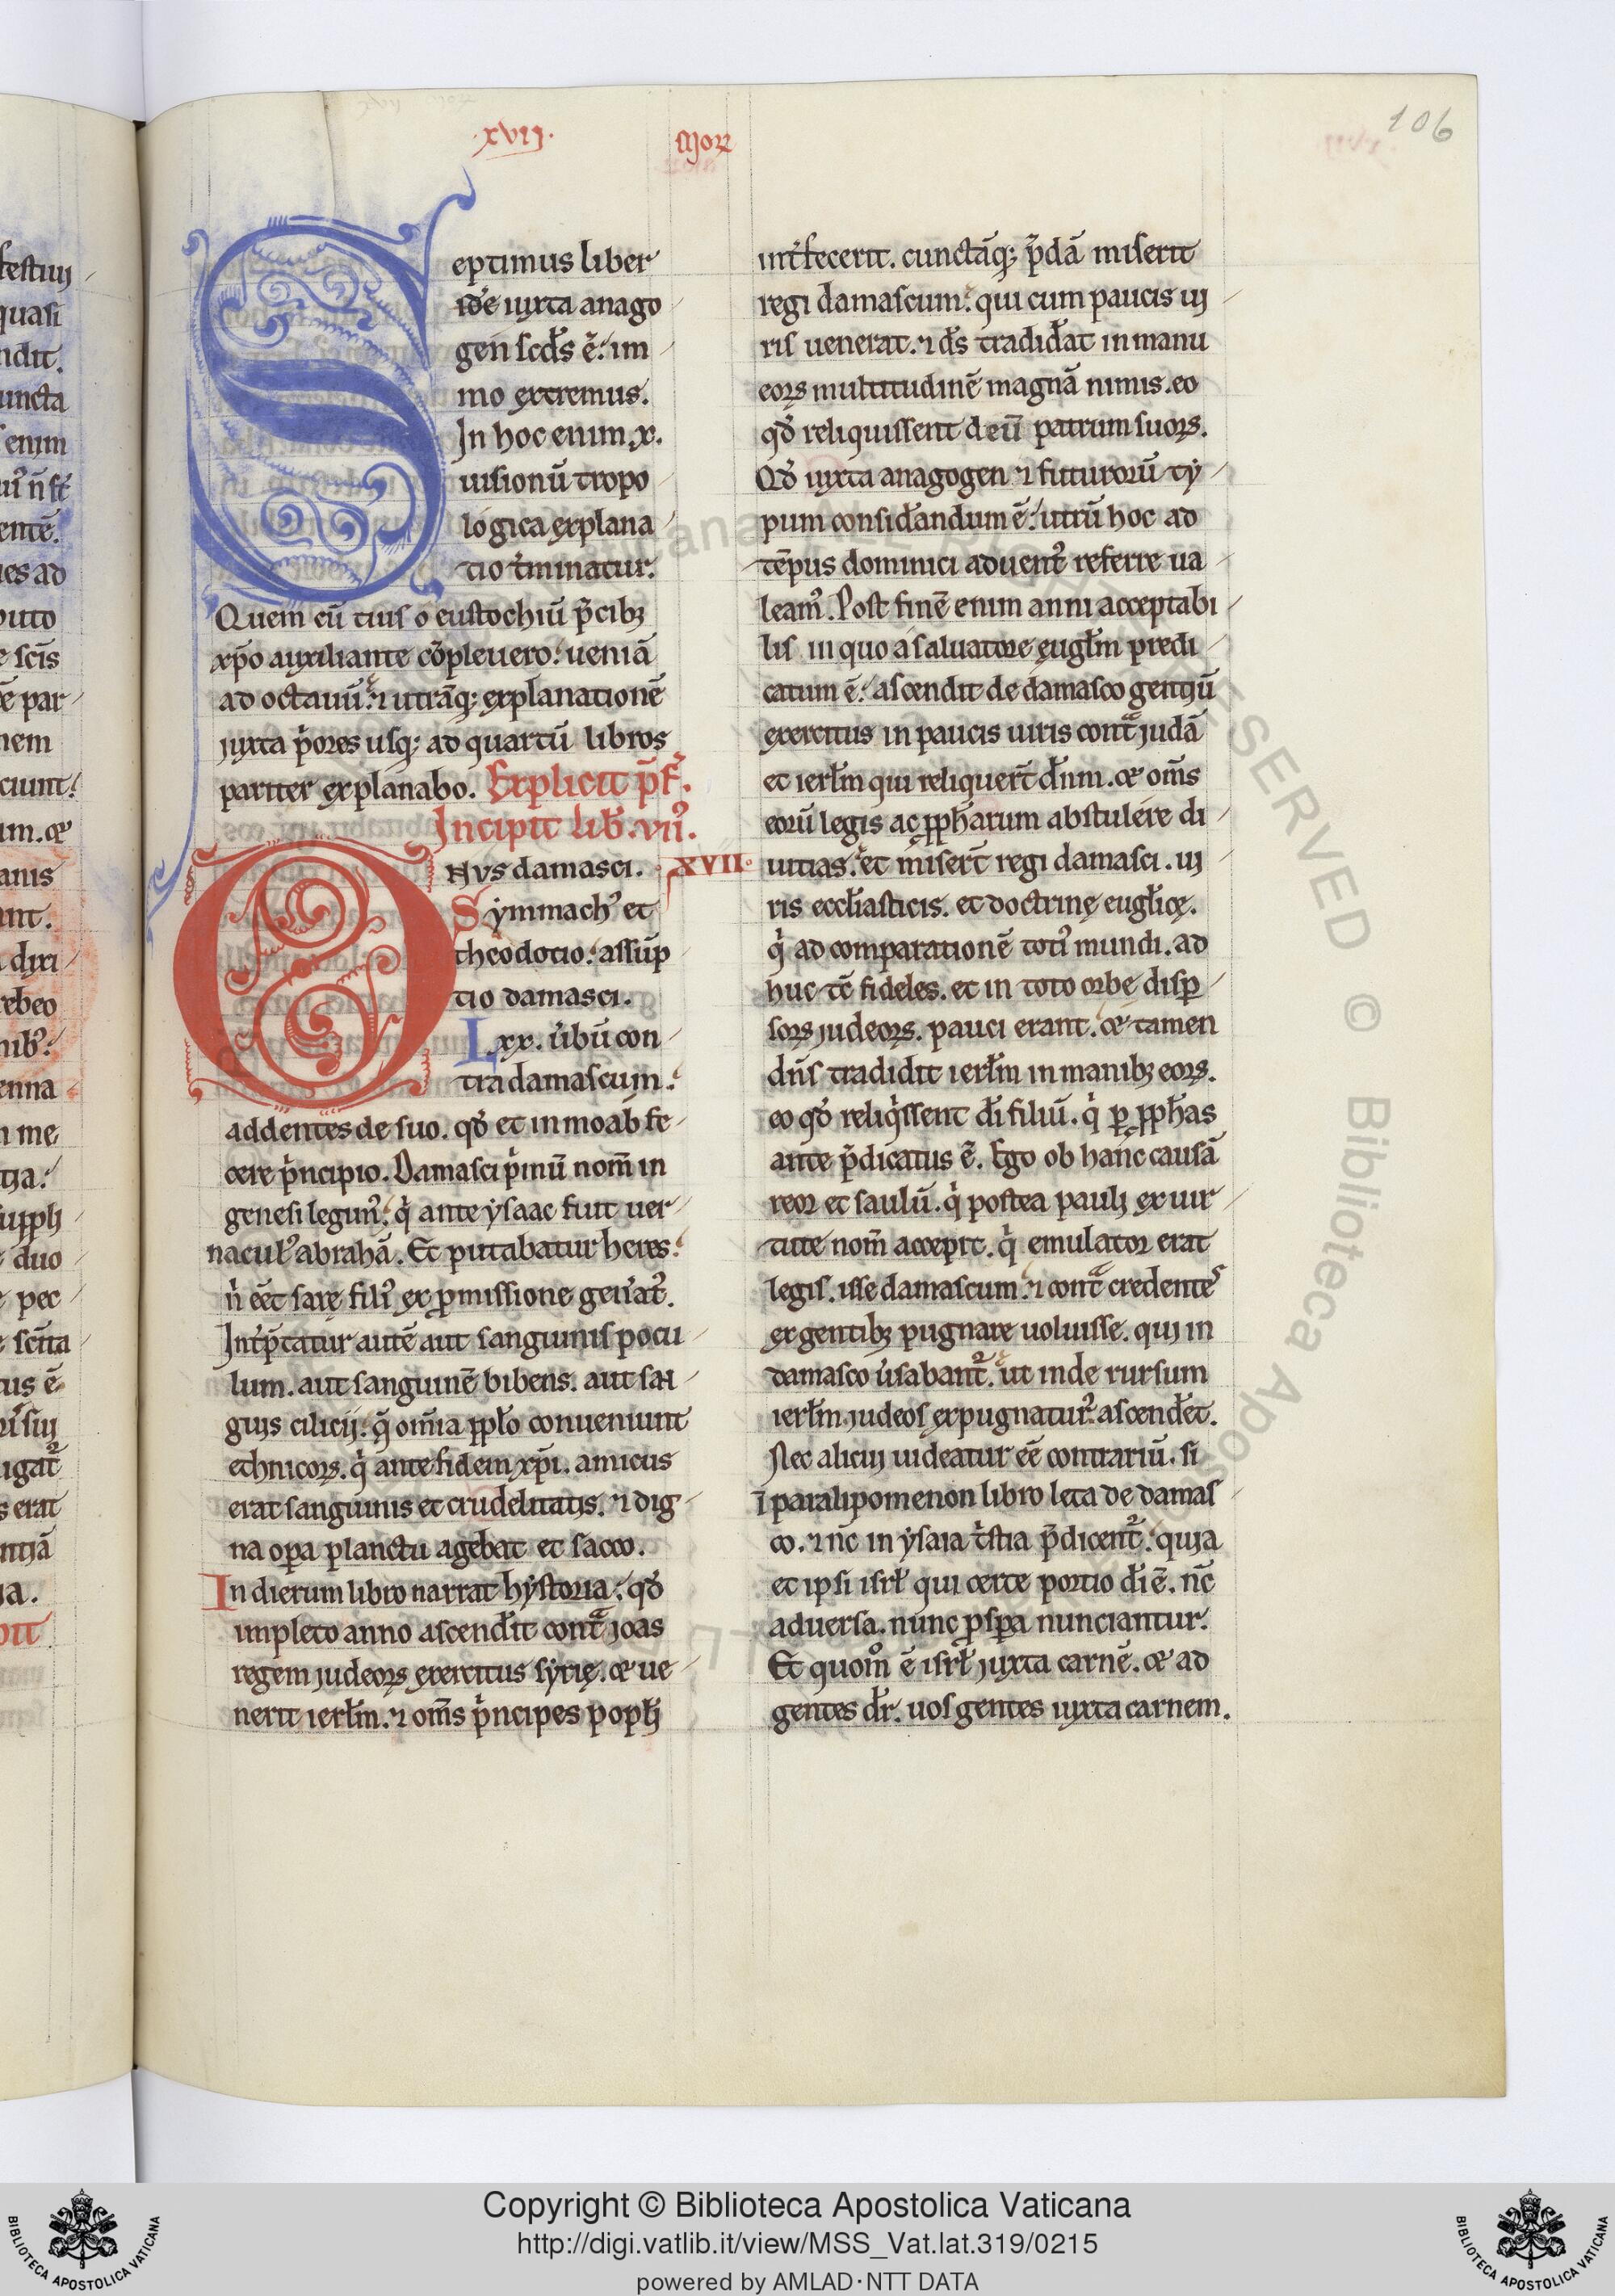 ·xvij·
Morz
106
Septimus liber
id'e iuxta anago
gen scd's ē: im
mo extremus.
In hoc enim .x.
uisionū tropo
logica explana
tio t'minatur.
Quem cū tuis o eustochiū p̄cibz
xp̄o auxiliante cōpleuero: ueniā
ad octauū: ⁊ utrāq; explanationē
juxta p'ores usq; ad quartū libros
pariter explanabo. Explicit p̄f'.
Incipit lib'. vii'.
ONVS damasci. XVII·
Symmach' et
theodotio: assūp
tio damasci.
Lxx. u'bū con
tra damascum:
addentes de suo. qd' et in moab fe
cere p'ncipio. Damasci p'mū nom̄ in
genesi legim': q' ante ysaac fuit uer
nacul' abrahā. Et putabatur heres:
n' eēt sarę fili' ex p̱missione gen'at'.
Int'p̄tatur autē aut sanguinis pocu
lum. aut sanguinē bibens. aut san
guis cilicij: q̄ om̄ia pp̄lo conueniunt
ethnicoꝝ. q' ante fidem xp̄i. amicus
erat sanguinis et crudelitatis. ⁊ dig
na op̱a planctu agebat et sacco.
In dierum libro narrat hystoria: qd'
impleto anno ascend'it contᵃ joas
regem judeoꝝ exercitus syrię. & ue
nerit ierłm. ⁊ om̄s p'ncipes popłi
int'fecerit. cunctāq; p̄dā miserit
regi damascum: qui cum paucis ui
ris uenerat. ⁊ d's tradid'at in manu
eoꝝ multitudinē magnā nimis. eo
qd' reliquissent deū patrum suoꝝ.
Qd' iuxta anagogen ⁊ futurorū ty
pum consid'andum ē: utrū hoc ad
tēpus dominici aduent' referre ua
leam'. Post finē enim anni acceptabi
lis in quo a saluatore ęugłm predi
catum ē: ascendit de damasco gentiū
exercitus in paucis uiris contᵃ judā
et ierłm qui reliquer̄t dn̄m. & om̄s
eorū legis ac pp̱harum abstulere di
uitias: et miser̄t regi damasci. ui
ris ecclīasticis. et doctrinę euglīcę.
q' ad comparationē toti' mundi. ad
huc tc̄ fideles. et in toto orbe disp̱
soꝝ judeoꝝ. pauci erant: & tamen
dn̄s tradidit ierłm in manibz eoꝝ.
eo qd' reliq'ssent di' filiū. q' p̱ pp̱has
ante p̄dicatus ē. Ego ob hanc causā
reor et saulū. q' postea pauli ex uir
tute nom̄ accepit. q' emulator erat
legis. isse damascum: ⁊ contᵃ credentes
ex gentibz pugnare uoluisse. qui in
damasco u'sabant². ut inde rursum
ierłm judeos expugnatur' ascend'et.
Nec alicui uideatur eē contrariū. si
ī paralipomenon libro leta de damas
co. ⁊ nc̄ in ysaia t'stia p̄dicent²: quia
et ipsi isrł qui certe portio di' ē. nc̄
aduersa. nunc p̱sp̱a nunciantur.
Et quom° ē isrł juxta carnē. & ad
gentes dr'. uos gentes iuxta carnem.
Copyright © Biblioteca Apostolica Vaticana
http://digi.vatlib.it/view/MSS_Vat.lat.319/0215
powered by AMLAD·NTT DATA
BIBLIOTECA APOSTOLICA VATICANA
BIBLIOTECA APOSTOLICA VATICANA